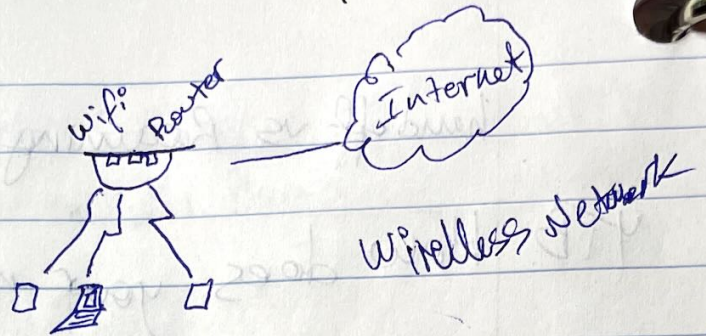 Wifi Router
Internet
Wirelless Network